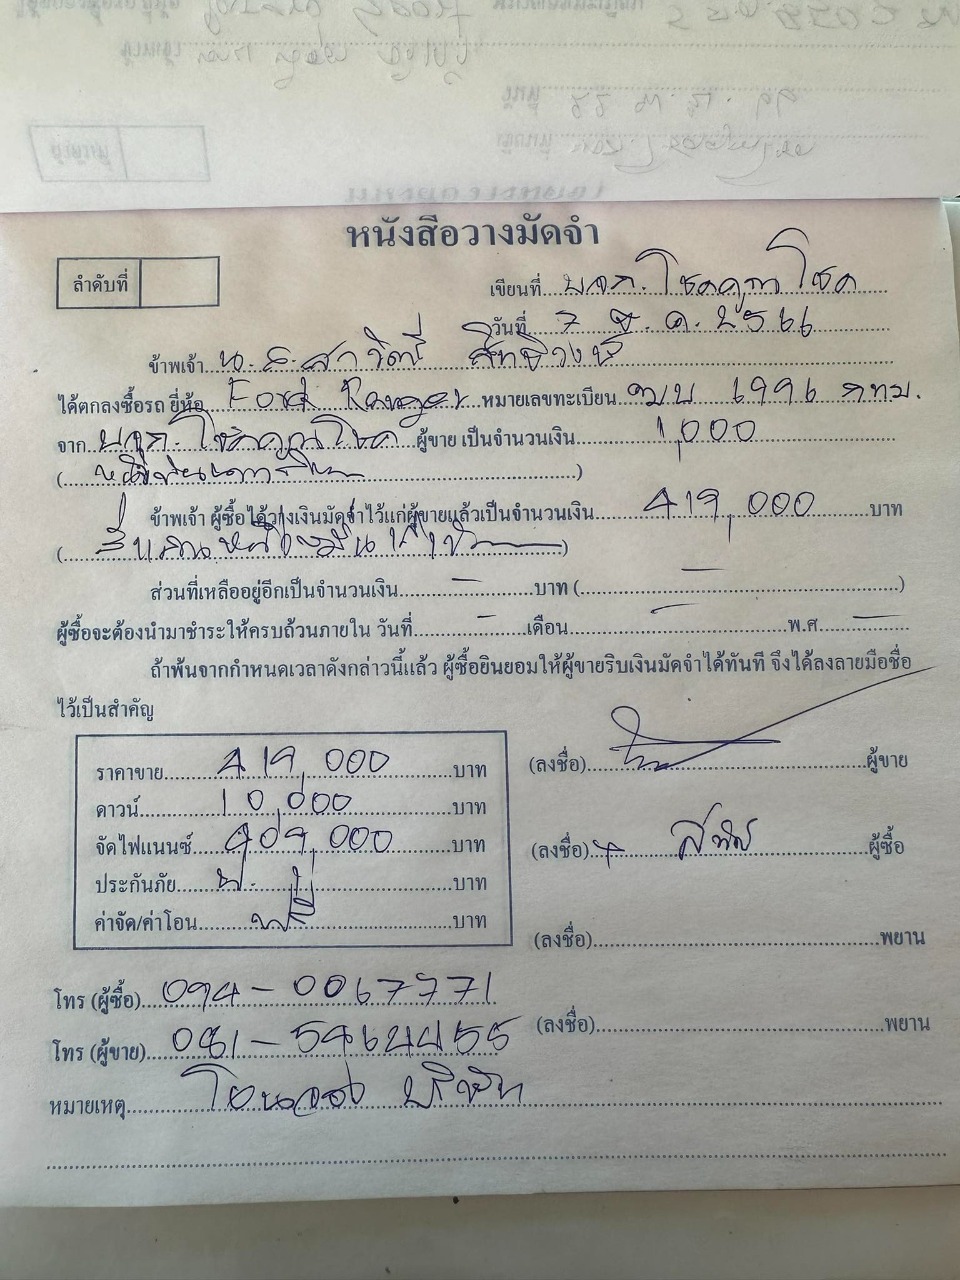 หนังสือวางมัดจำ
ลำดับที่
เขียนที่ บจก. โชคคูณโชค
วันที่ 7 ธ.ค. 2566
ข้าพเจ้า น.ส. สาวิตรี สิทธิวงษ์
ได้ตกลงซื้อรถ ยี่ห้อ Ford Ranger หมายเลขทะเบียน ฒบ 6996 กทม.
จาก บจก. โชคคูณโชค ผู้ขาย เป็นจำนวนเงิน 1,000
ข้าพเจ้า ผู้ซื้อได้วางเงินมัดจำไว้แก่ผู้ขายแล้วเป็นจำนวนเงิน 419,000 บาท
(สี่แสนหนึ่งหมื่นเก้าพัน)
ส่วนที่เหลืออยู่อีกเป็นจำนวนเงิน - บาท ( - )
ผู้ซื้อจะต้องนำมาชำระให้ครบถ้วนภายใน วันที่ - เดือน - พ.ศ -
ถ้าพ้นจากกำหนดเวลาดังกล่าวนี้แล้ว ผู้ซื้อยินยอมให้ผู้ขายริบเงินมัดจำได้ทันที จึงได้ลงลายมือชื่อ
ไว้เป็นสำคัญ
ราคาขาย 419,000 บาท
ดาวน์ 10,000 บาท
จัดไฟแนนซ์ 409,000 บาท
ประกันภัย บาท
ค่าจัด/ค่าโอน ฟรี บาท
(ลงชื่อ) ผู้ขาย
(ลงชื่อ) ผู้ซื้อ
(ลงชื่อ) พยาน
(ลงชื่อ) พยาน
โทร (ผู้ซื้อ) 094-0067771
โทร (ผู้ขาย) 081-5464455
หมายเหตุ โอนจอง บริษัท